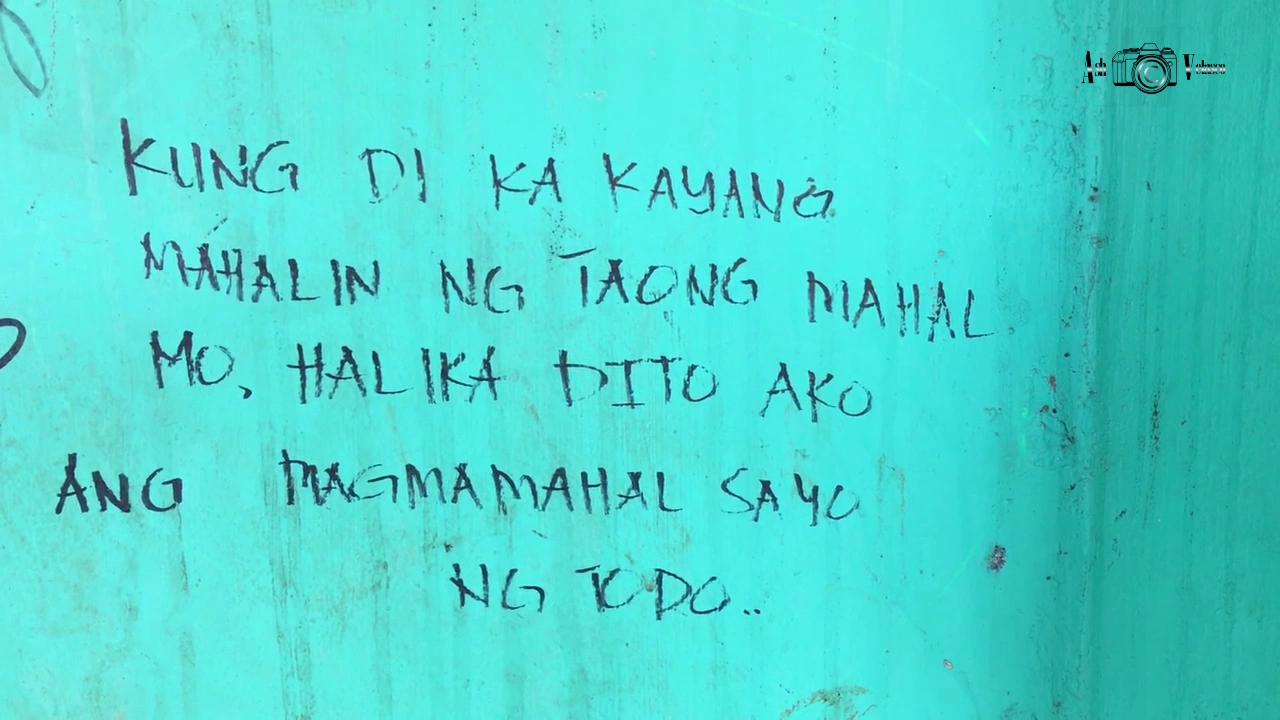 Ash Velasco
KUNG DI KA KAYANG
MAHALIN NG TAONG MAHAL
MO, HALIKA DITO AKO
ANG MAGMAMAHAL SAYO
NG TODO..